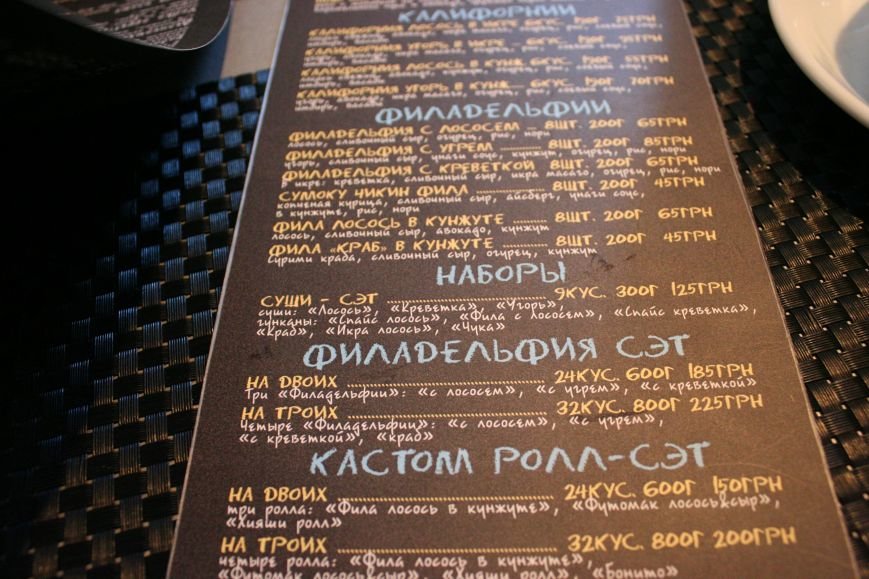 КАЛИФОРНИИ
КАЛИФОРНИЯ ЛОСОСЬ В ИКРЕ 6КУС. 190Г
КАЛИФОРНИЯ УГОРЬ В ИКРЕ 6КУС. 190Г 95ГРН
КАЛИФОРНИЯ ЛОСОСЬ В КУНЖ. 6КУС. 190Г 55ГРН
КАЛИФОРНИЯ УГОРЬ В КУНЖ. 6КУС. 190Г 70ГРН
ФИЛАДЕЛЬФИИ
ФИЛАДЕЛЬФИЯ С ЛОСОСЕМ ... 8ШТ. 200Г 65ГРН
лосось, сливочный сыр, огурец, рис, нори
ФИЛАДЕЛЬФИЯ С УГРЕМ ........ 8ШТ. 200Г 85ГРН
угорь, сливочный сыр, унаги соус, кунжут, огурец, рис, нори
ФИЛАДЕЛЬФИЯ С КРЕВЕТКОЙ 8ШТ. 200Г 65ГРН
в икре: креветка, сливочный сыр, икра масаго, огурец, рис, нори
СУМОКУ ЧИКИН ФИЛА ................ 8ШТ. 200Г 45ГРН
копченая курица, сливочный сыр, айсберг, унаги соус,
в кунжуте, рис, нори
ФИЛА ЛОСОСЬ В КУНЖУТЕ ........ 8ШТ. 200Г 65ГРН
лосось, сливочный сыр, авокадо, кунжут
ФИЛА «КРАБ» В КУНЖУТЕ ............ 8ШТ. 200Г 45ГРН
сурими краба, сливочный сыр, огурец, кунжут
НАБОРЫ
СУШИ – СЭТ ........................................ 9КУС. 300Г 125ГРН
суши: «Лосось», «Креветка», «Угорь»,
гунканы: «Спайс лосось», «Фила с лососем», «Спайс креветка»,
«Краб», «Икра лосось», «Чука»
ФИЛАДЕЛЬФИЯ СЭТ
НА ДВОИХ .................................................. 24КУС. 600Г 185ГРН
Три «Филадельфии»: «с лососем», «с угрем», «с креветкой»
НА ТРОИХ .................................................. 32КУС. 800Г 225ГРН
Четыре «Филадельфии»: «с лососем», «с угрем»,
«с креветкой», «краб»
КАСТОМ РОЛЛ-СЭТ
НА ДВОИХ .................................................. 24КУС. 600Г 150ГРН
три ролла: «Фила лосось в кунжуте», «Футомак лосось&сыр»,
«Хияши ролл»
НА ТРОИХ .................................................. 32КУС. 800Г 200ГРН
четыре ролла: «Фила лосось в кунжуте»,
«Футомак лосось&сыр», «Хияши ролл», «Бонито»